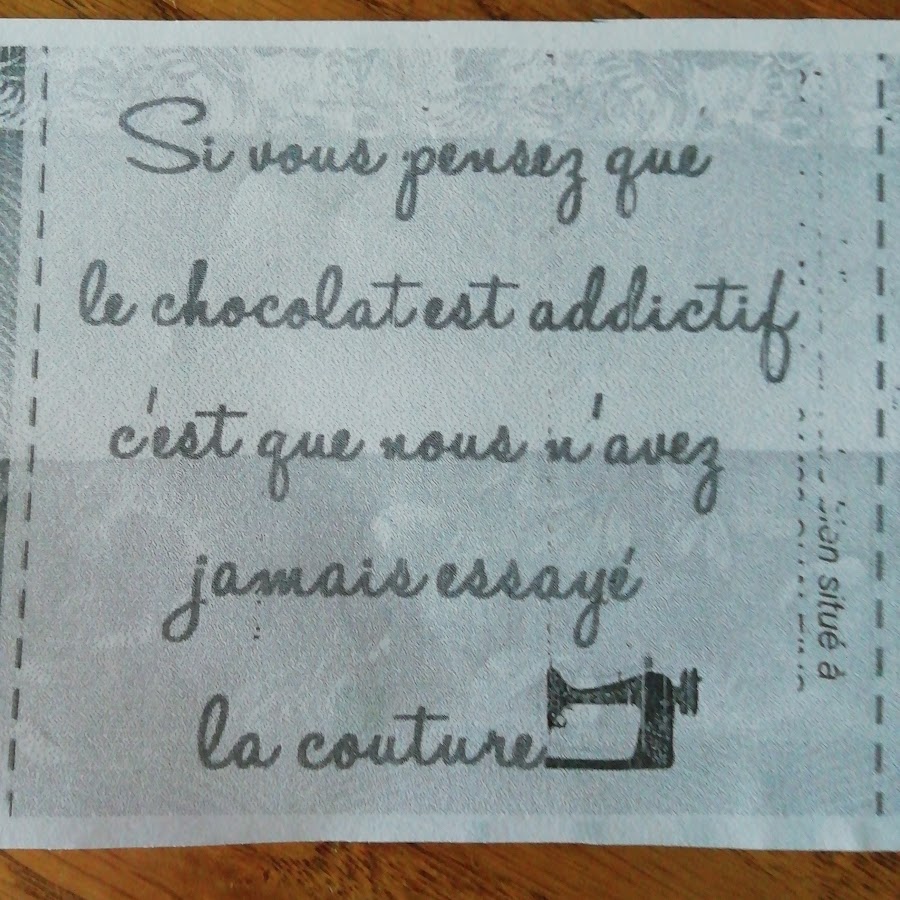 Si vous pensez que
le chocolat est addictif
c'est que nous n'avez
jamais essayé
la couture
situé à